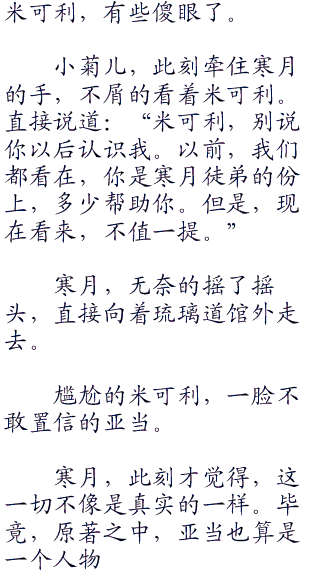 米可利，有些傻眼了。
小菊儿，此刻牵住寒月
的手，不屑的看着米可利。
直接说道：“米可利，别说
你以后认识我。以前，我们
都看在，你是寒月徒弟的份
上，多少帮助你。但是，现
在看来，不值一提。”
寒月，无奈的摇了摇
头，直接向着琉璃道馆外走
去。
尴尬的米可利，一脸不
敢置信的亚当。
寒月，此刻才觉得，这
一切不像是真实的一样。毕
竟，原著之中，亚当也算是
一个人物